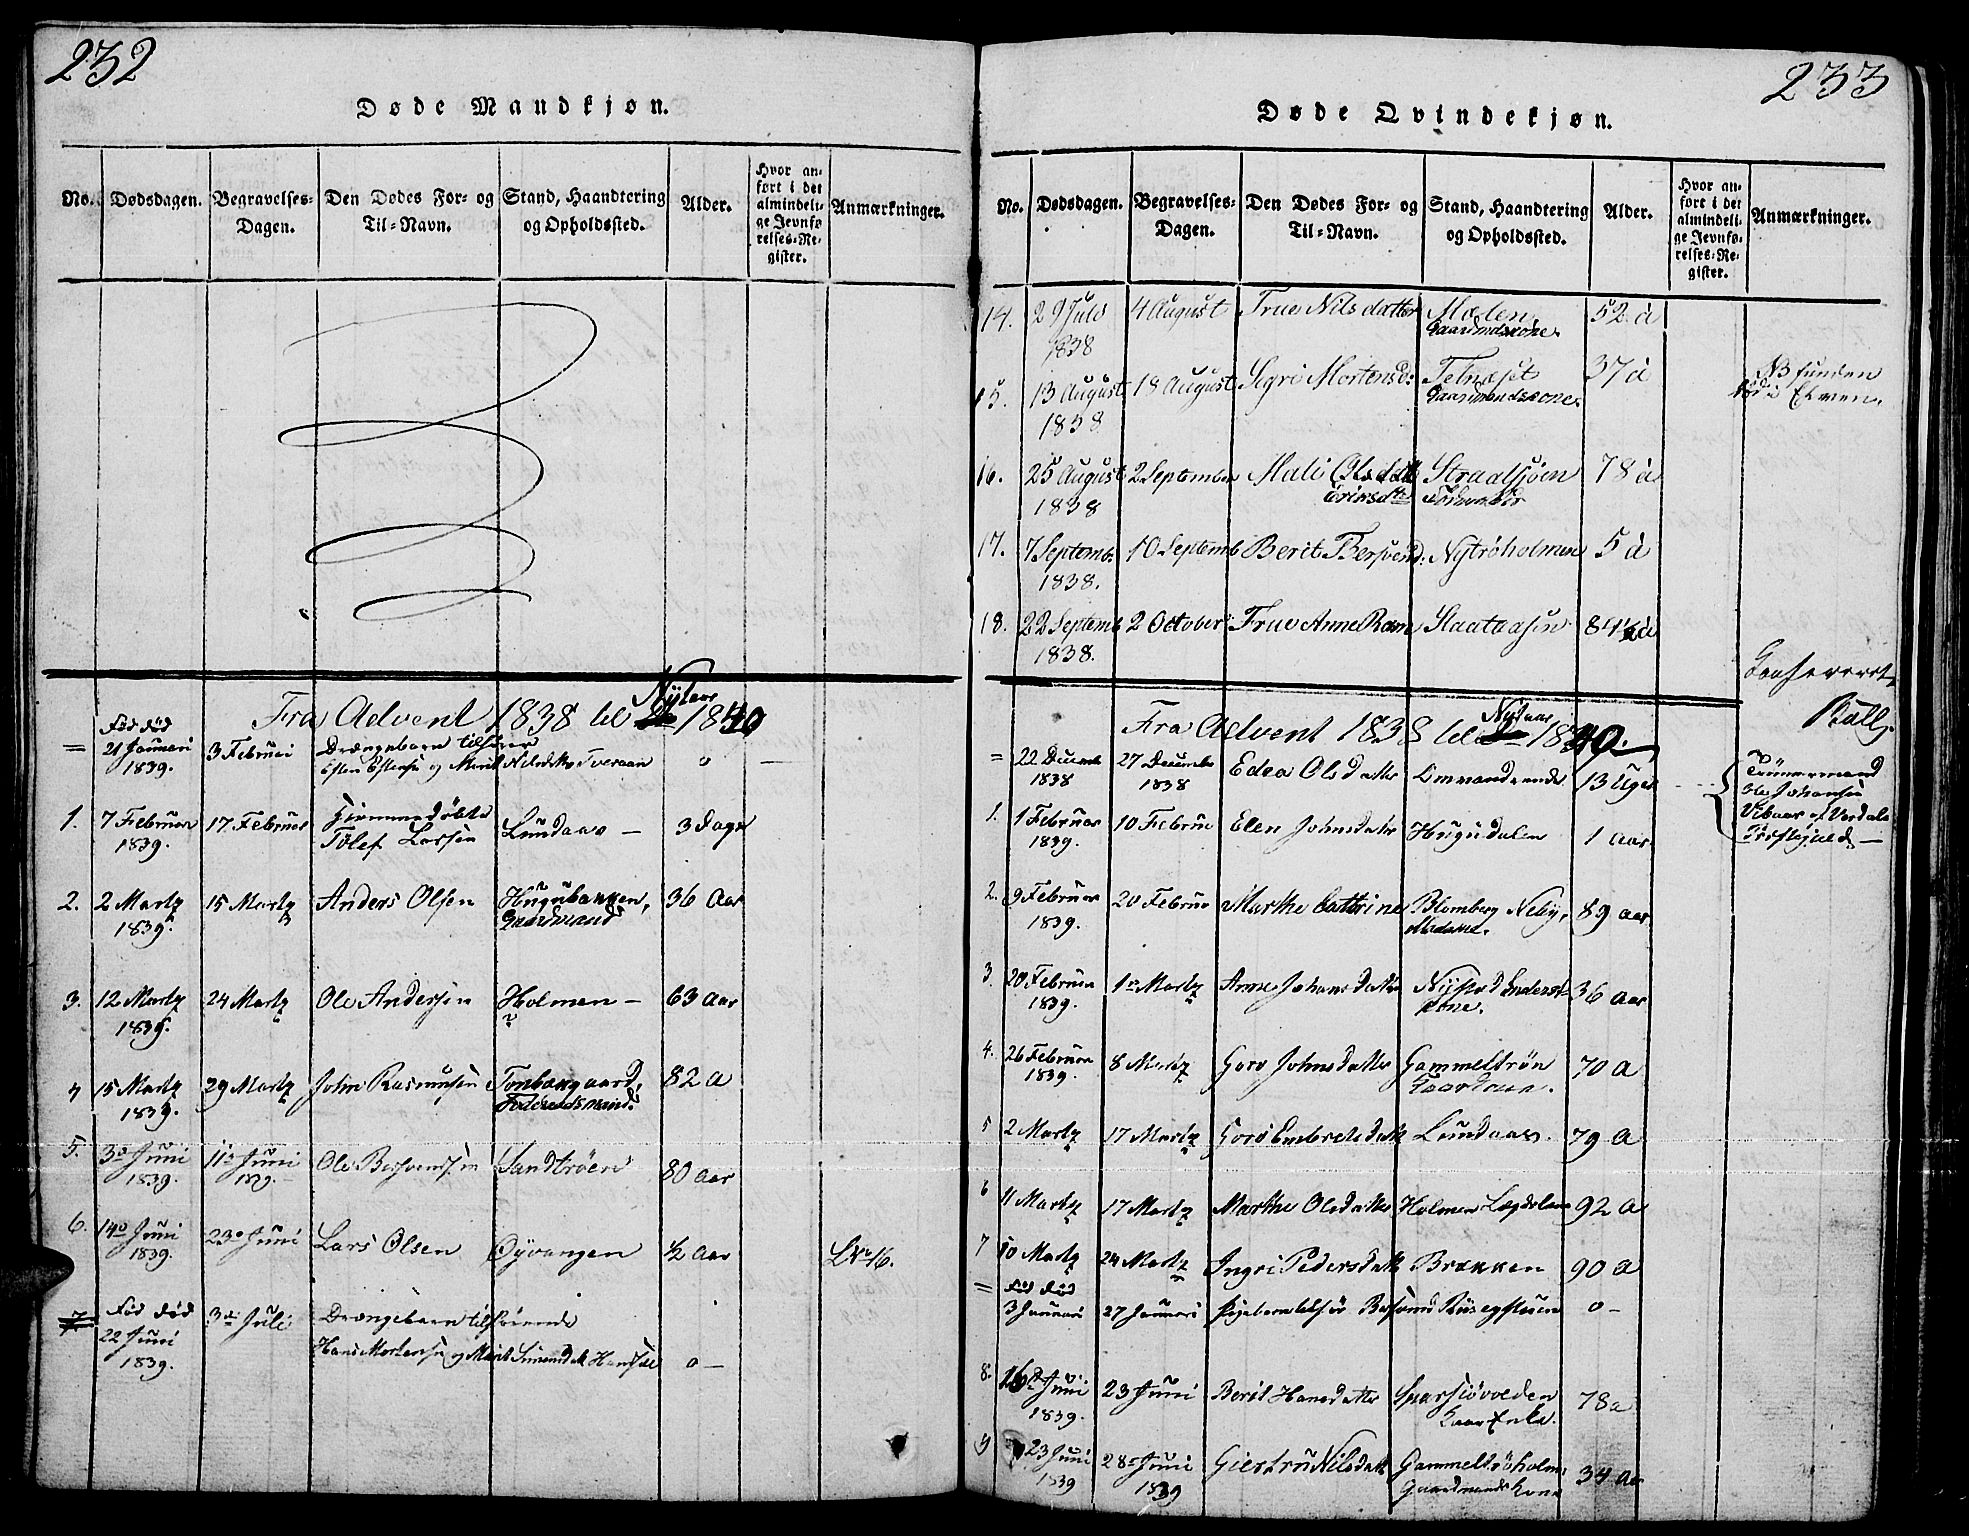 232
Døde Mandkjøn.
No. Dødsdagen. Begravelses-Dagen. Den Dødes For- og Til-Navn. Stand, Haandtering og Opholdssted. Alder. Hvor anført i det almindelige Jevnførelses-Register. Anmærkninger.
Fra Advent 1838 til Nytaar 1840
= Fød død 21 Januari 1839. 3 Februri Drængebarn tilhører Esten Estensen og Marit Tveraan 0 —
1. 7 Februar 1839. 17 Februar Hjemmedøbte Tølef Larsen Lundaas — 3 Dage
2. 2 Martz 1839. 15 Martz Anders Olsen Hugubakken, Gaardmand 36 Aar
3. 12 Martz 1839. 24 Martz Ole Andersen Holmen — 63 Aar
4 15 Martz 1839. 29 Martz John Rasmusen Tonbakgaard, Føderaadsmand. 82 a
5. 3d Juni 1839. 11d Juni 1839. Ole Bersvensen Sandtrøen 80 aar
6. 14d Juni 1839. 23d Juni Lars Olsen Øyvangen ½ aar L No 16.
7. Fød død 22 Juni 1839. 3d Juli Drængebarn tilhørende Hans Mortensen og Marit 0 —
233
Døde Qvindekjøn.
No. Dødsdagen. Begravelses-Dagen. Den Dødes For- og Til-Navn. Stand, Haandtering og Opholdssted. Alder. Hvor anført i det almindelige Jevnførelses-Register. Anmærkninger.
14. 29 Juli 1838 4 August Frue Nilsdatter Moelen Gaardmdskone. 52 a
15. 13 August 1838 18 August Sigri Mortensd: Telneset Gaardmandskone. 37 a NB funden død i Elven.
16. 25 August 1838 2 September Mali Olsdatt Ericsdtr Straalsjøen 78 a
17. 7 Septemb. 1838. 10 Septemb Berit Bersvend: Nytrøholmen 5 a
18. 22 Septemb 1838. 2 October Frue Anne Ram Slaataasen 84½ a
Fra Advent 1838 til Nytaar 1840.
= 22 Decemb 1838 27 Decembr 1838 Edea Olsdatter Omvandrende 13 Uger Tømmermand Ole Johansen Vibaar af Verdals Præstegjeld —
1. 1 Februar 1839. 10 Februar Elen Johnsdatter Hugudalen 1 aar
2. 9 Februar 1839. 20 Februar Marthe Cattrine Blomberg Neby, Madame. 89 aar
3. 20 Februar 1839. 1ste Martz Anne Johansdatter Nystad kone. 36 aar
4. 26 Februar 1839. 8 Martz Goro Johnsdatter Gammeltrøn 70 a
5 2 Martz 17 Martz Goro Embretsdatt Lundaas. 79 a
6 11 Martz 17 Martz Marthe Olsdatter Holmen Lægdslem 92 a
7 10 Martz 24 Martz Ingri Pedersdatt Brækken 90 a
= Fød død 3 Januari 27 Januari Pigebarn tilhør Bersvend Rusegstuen 0 —
8. 16d Juni 1839. 23 Juni Berit Hansdatter Sparsjøvolden Enke. 78 a
9 23 Juni 1839 28d Juni 1839 Giertru Nilsdatt Gammeltrøholm: Gaardmandskone 34 aar